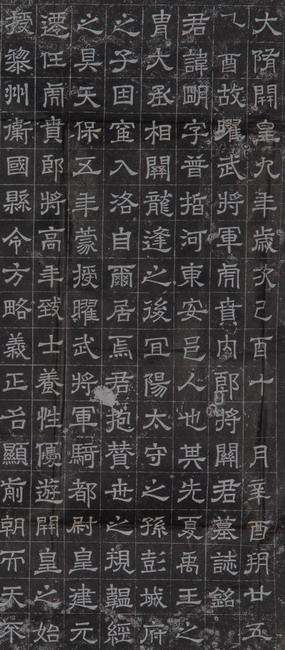 大隋開皇九年歲次己酉十一月辛酉朔廿五
乙酉故曜武將軍虎賁內郎將關君墓誌銘
君諱明字普哲河東安邑人也其先夏禹王之
冑大丞相關龍逢之後宜陽太守之孫彭城府
之子因宦入洛自爾居焉君抱贊世之規韞經
之具天保五年蒙授曜武將軍騎都尉皇建元
遷任虎賁郎將高年致士養性優遊開皇之始
授黎州衞國縣令方略義正名顯前朝而天不